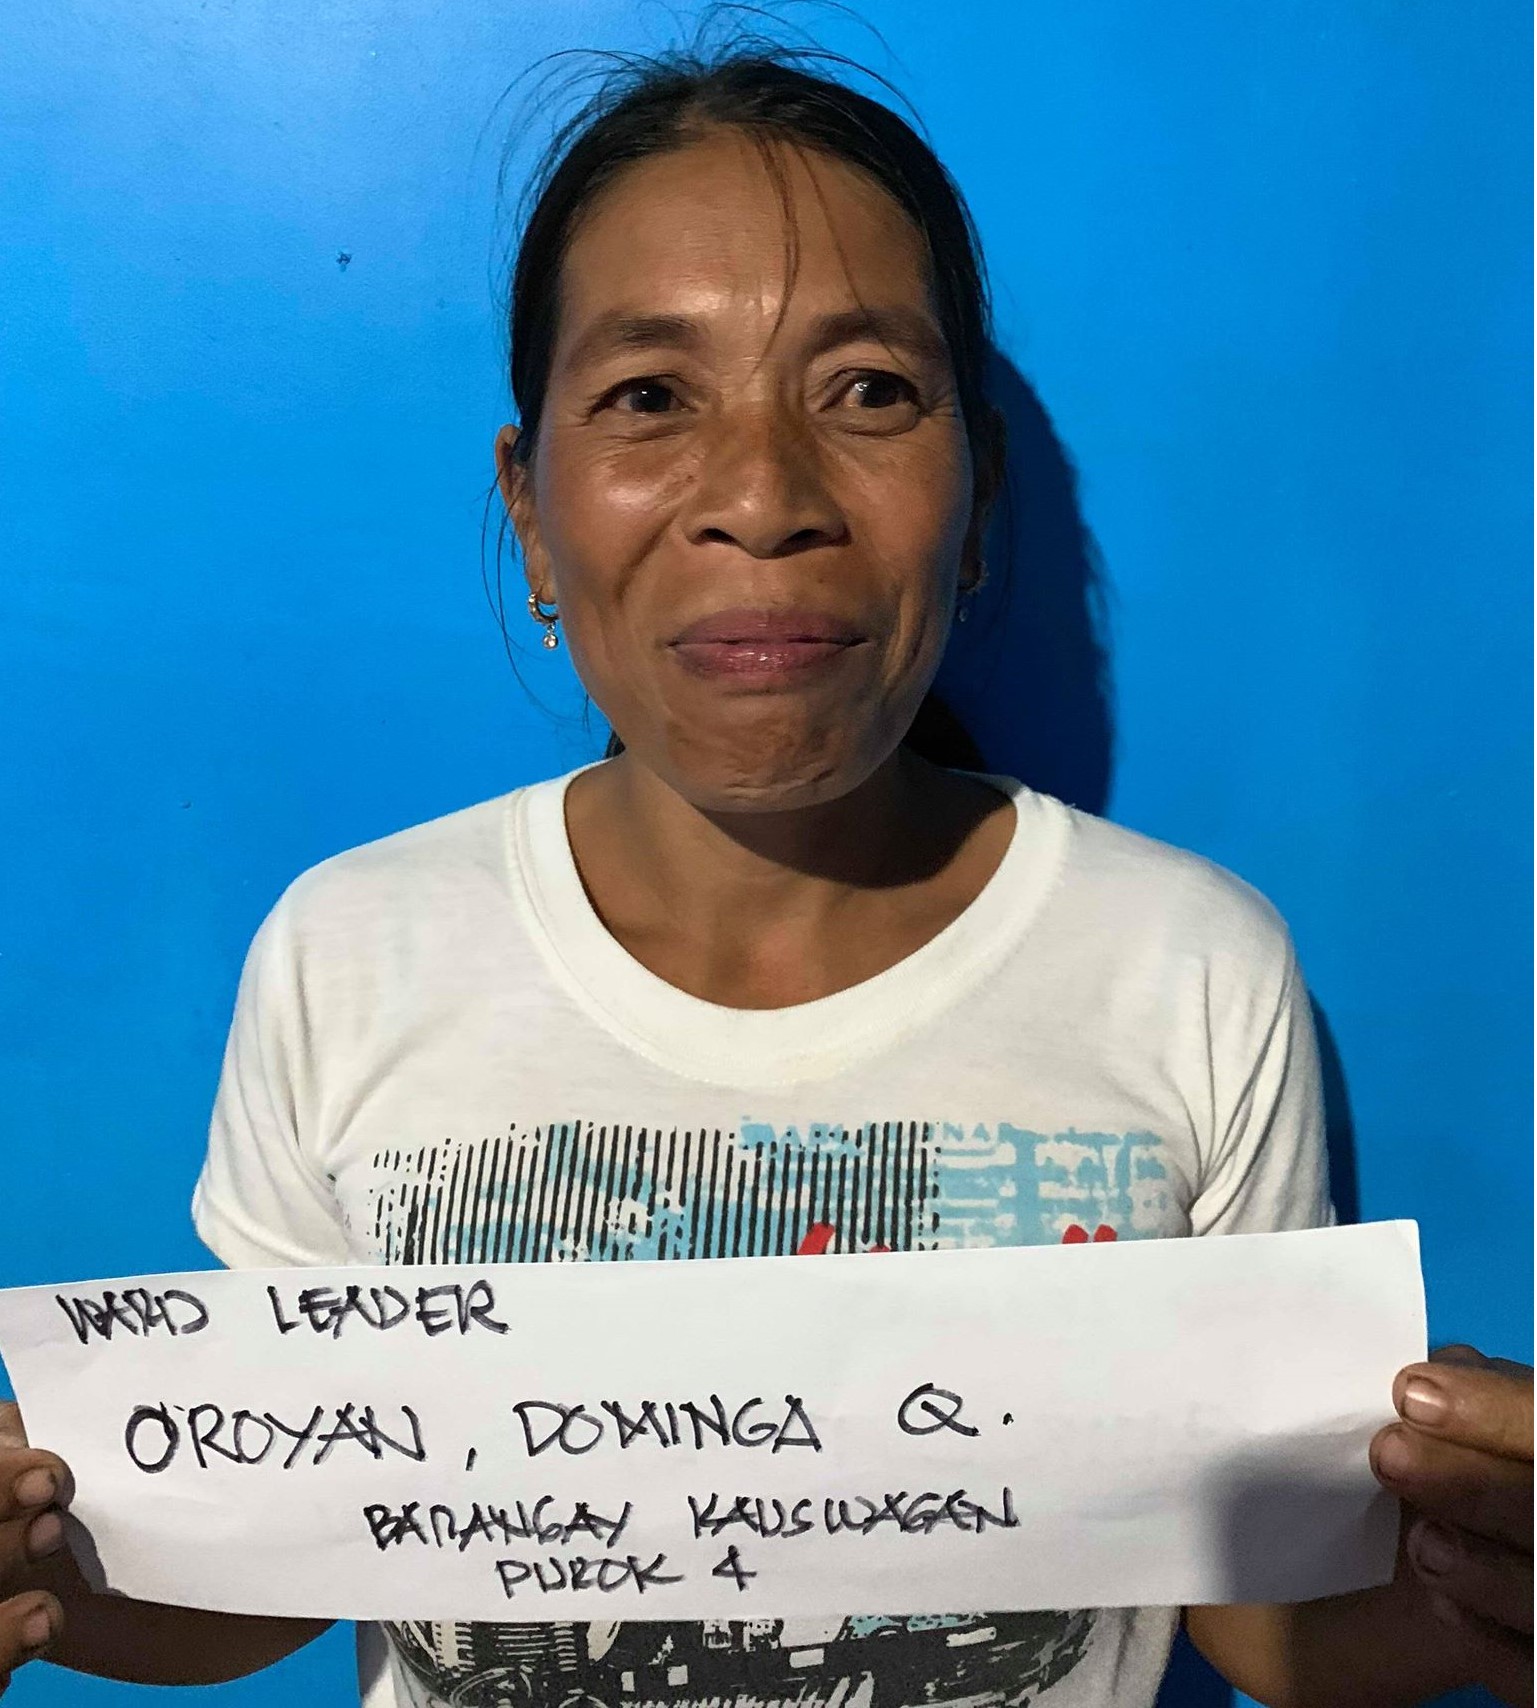 WARD LEADER
OROYAN, DOMINGA Q.
BARANGAY KAUSWAGAN
PUROK 4